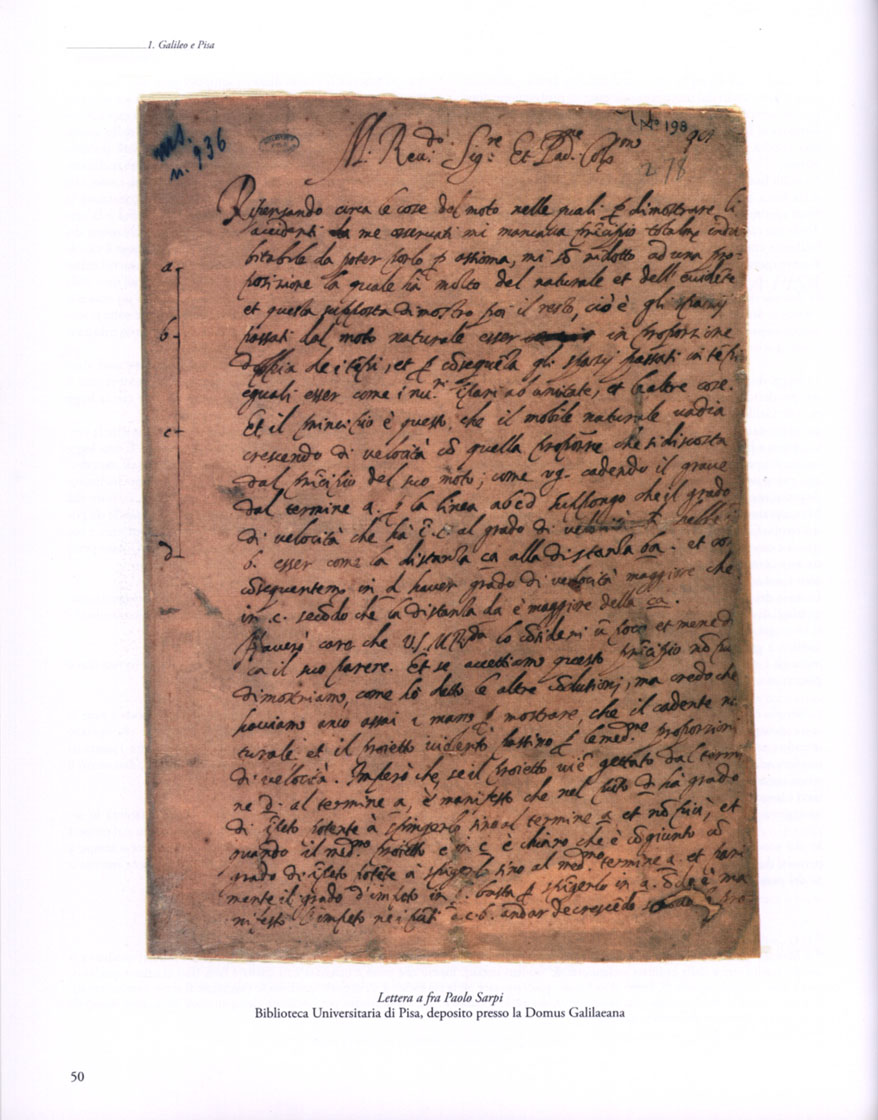 1. Galileo e Pisa
ms. n. 936
N° 198
278
M. Rev.do Sig.re Et Pad.
Ripensando circa le cose del moto nelle quali p dimostrare li
accidenti da me osservati mi mancava prīcipio totalmē indu
bitabile da poter porlo p assioma, mi sō ridotto ad una pro-
posizione la quale hà molto del naturale et dell'evidēte
et questa supposta dimostro poi il resto, ciò è gli spazij
passati dal moto naturale esser in proporzione
doppia de i tēpi, et p cōsequēza gli spazij passati in tēpi
eguali esser come i nu.ri īpari ab unitate, et le altre cose.
Et il principio è questo, che il mobile naturale vadia
crescendo di velocità cō quella proporzne che si discosta
dal prīcipio del suo moto; come vg. cadendo il grave
dal termine a. p la linea abcd suppongo che il grado
di velocità che hà ī c. al grado di
b. esser come la distanza ca alla distanza ba. et co
cōsequentemē in d haver grado di velocità maggiore che
in c. secōdo che la distanza da è maggiore della ca.
Haverei caro che V.S.M.Rda lo cōsideri ū poco et me ne d
ca il suo parere. Et se accettiamo questo prīcipio nō pu
dimostriamo, come hò detto le altre cōclusioni, ma credo che
haviamo anco assai ī mano p mostrare, che il cadente na
turale et il proietto passino p le med.me proporzioni
di velocità. Imperò che, se il proietto viē gettato dal termi
ne D. al termine a, è manifesto che nel pūto D hà grado
di īpeto potente à spingerlo sino al termine a et nō più; et
quando il med.mo proietto è in c è chiaro che è cōgiunto cō
grado di īpeto potēte à spīgerlo sino al med.mo termine a. et pari
mente il grado d'impeto in b. basta p spīgerlo in a. ōde è ma
nifesto l'impeto ne i pūti d.c.b. andar decrescēdo
a
b
c
d
Lettera a fra Paolo Sarpi
Biblioteca Universitaria di Pisa, deposito presso la Domus Galilaeana
50